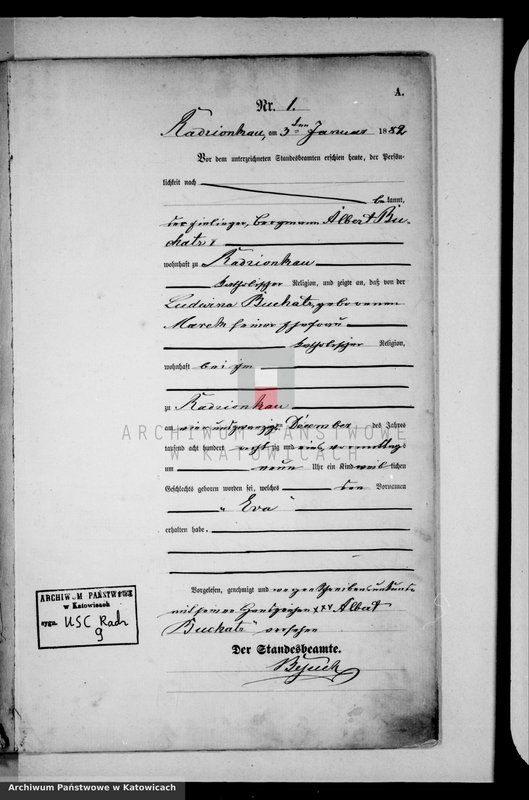 A.
Nr. 1.
Radzionkau, am 3ten Januar 1882
Vor dem unterzeichneten Standesbeamten erschien heute, der Persön-
lichkeit nach
bekannt,
der Einlieger, Bergmann Albert Bu-
chatz
wohnhaft zu Radzionkau
katholischer Religion, und zeigte an, daß von der
Ludwina Buchatz, geborenen
Marek seiner Ehefrau
katholischer Religion,
wohnhaft bei ihm
zu Radzionkau
am vier und zwanzigsten December des Jahres
tausend acht hundert achtzig und eins vormittags
um neun Uhr ein Kind weiblichen
Geschlechts geboren worden sei, welches den Vornamen
"Eva"
erhalten habe.
Vorgelesen, genehmigt und wegen Schreibensunkunde
mit seinem Handzeichen xxx Albert
Buchatz versehen
Der Standesbeamte.
ARCHIWUM PAŃSTWOWE
W KATOWICACH
ARCHIWUM PAŃSTWOWE
w Katowicach
sygn. USC Radz
9
Archiwum Państwowe w Katowicach